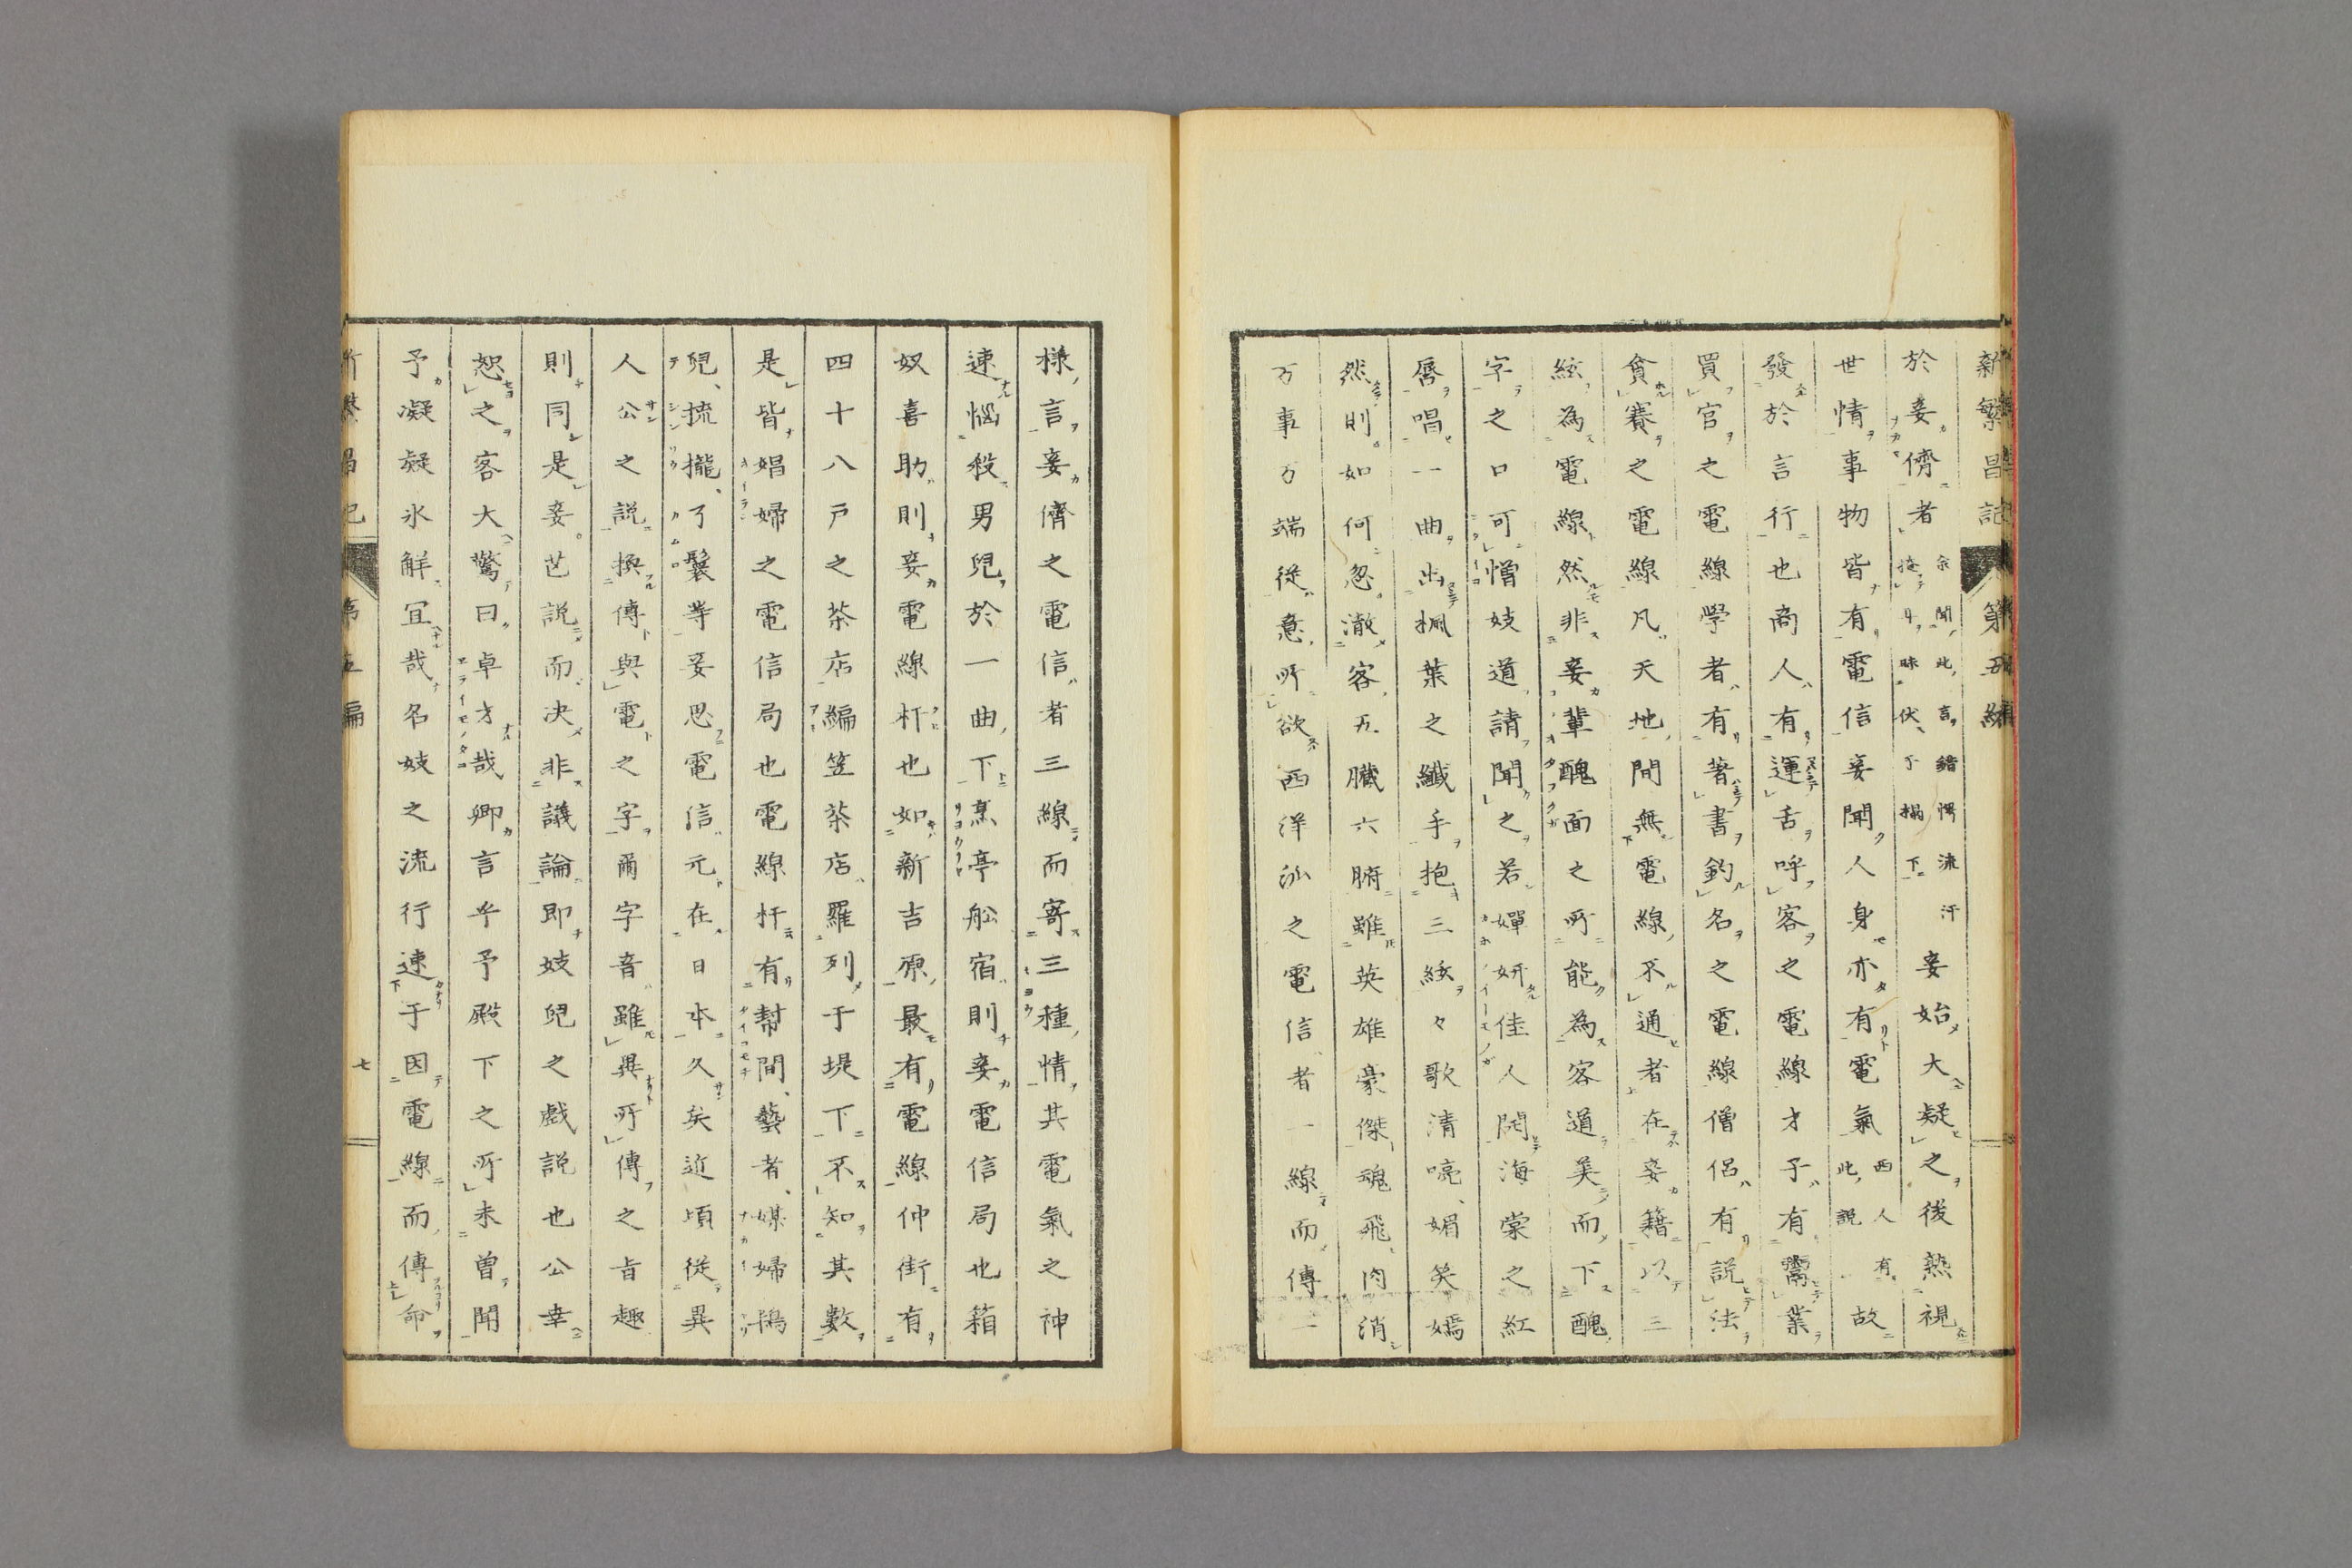 新繁昌記 第五編
於妾儕者 余聞此言錯愕流汗掩耳昧伏于榻下 妾始大疑之後熟視
世情事物皆有電信妾聞人身亦有電氣 西人有此説 故
發於言行也商人有運舌呼客之電線才子有鬻業
買官之電線學者有著書釣名之電線僧侶有説法
貪賽之電線凡天地間無電線不通者在妾籍以三
絃為電線然非妾輩醜面之所能為客道美而下醜
字之口可憎妓道請聞之若嬋妍佳人開海棠之紅
唇唱一曲出楓葉之纖手抱三絃々歌清喨媚笑嫣
然則如何忽澈客五臓六腑雖英雄豪傑魂飛肉消
万事万端從意所欲西洋泒之電信者一線而傳一
様言妾儕之電信者三線而寄三種情其電氣之神
速惱殺男兒於一曲下烹亭舩宿則妾電信局也箱
奴喜助則妾電線杆也如新吉原最有電線仲街有
四十八戸之茶店編笠茶店羅列于堤下不知其數
是皆娼婦之電信局也電線杆有幇間、藝者、媒婦鴇
兒、梳攏、了鬟等妾思電信元在日本久矣近頃從異
人公之説換傳與電之字爾字音雖異所傳之旨趣
則同是妾芒説而决非議論即妓兒之戯説也公幸
恕之客大驚曰卓才哉卿言乎予殿下之所未曽聞
予凝疑氷解冝哉名妓之流行速于因電線而傳命
新繁昌記 第五編 七